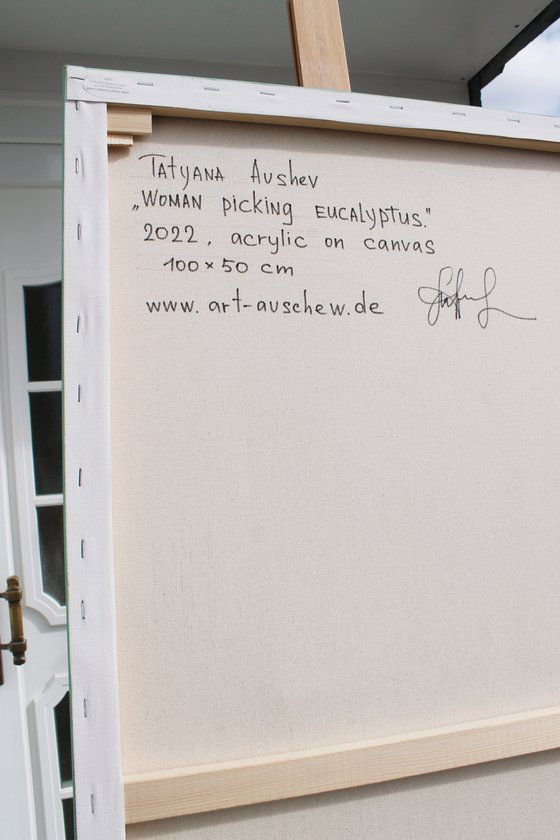 Tatyana Aushev
„Woman picking Eucalyptus."
2022, acrylic on canvas
100×50 cm
www.art-auschew.de